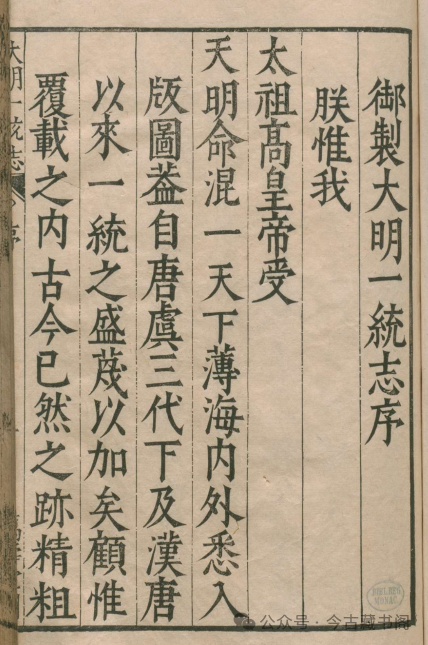 御製大明一統志序
朕惟我
太祖高皇帝受
天明命混一天下薄海内外悉入
版圖葢自唐虞三代下及漢唐
以來一統之盛蔑以加矣顧惟
覆載之内古今已然之跡精粗
大明一統志
序
公众号·今古藏书阁